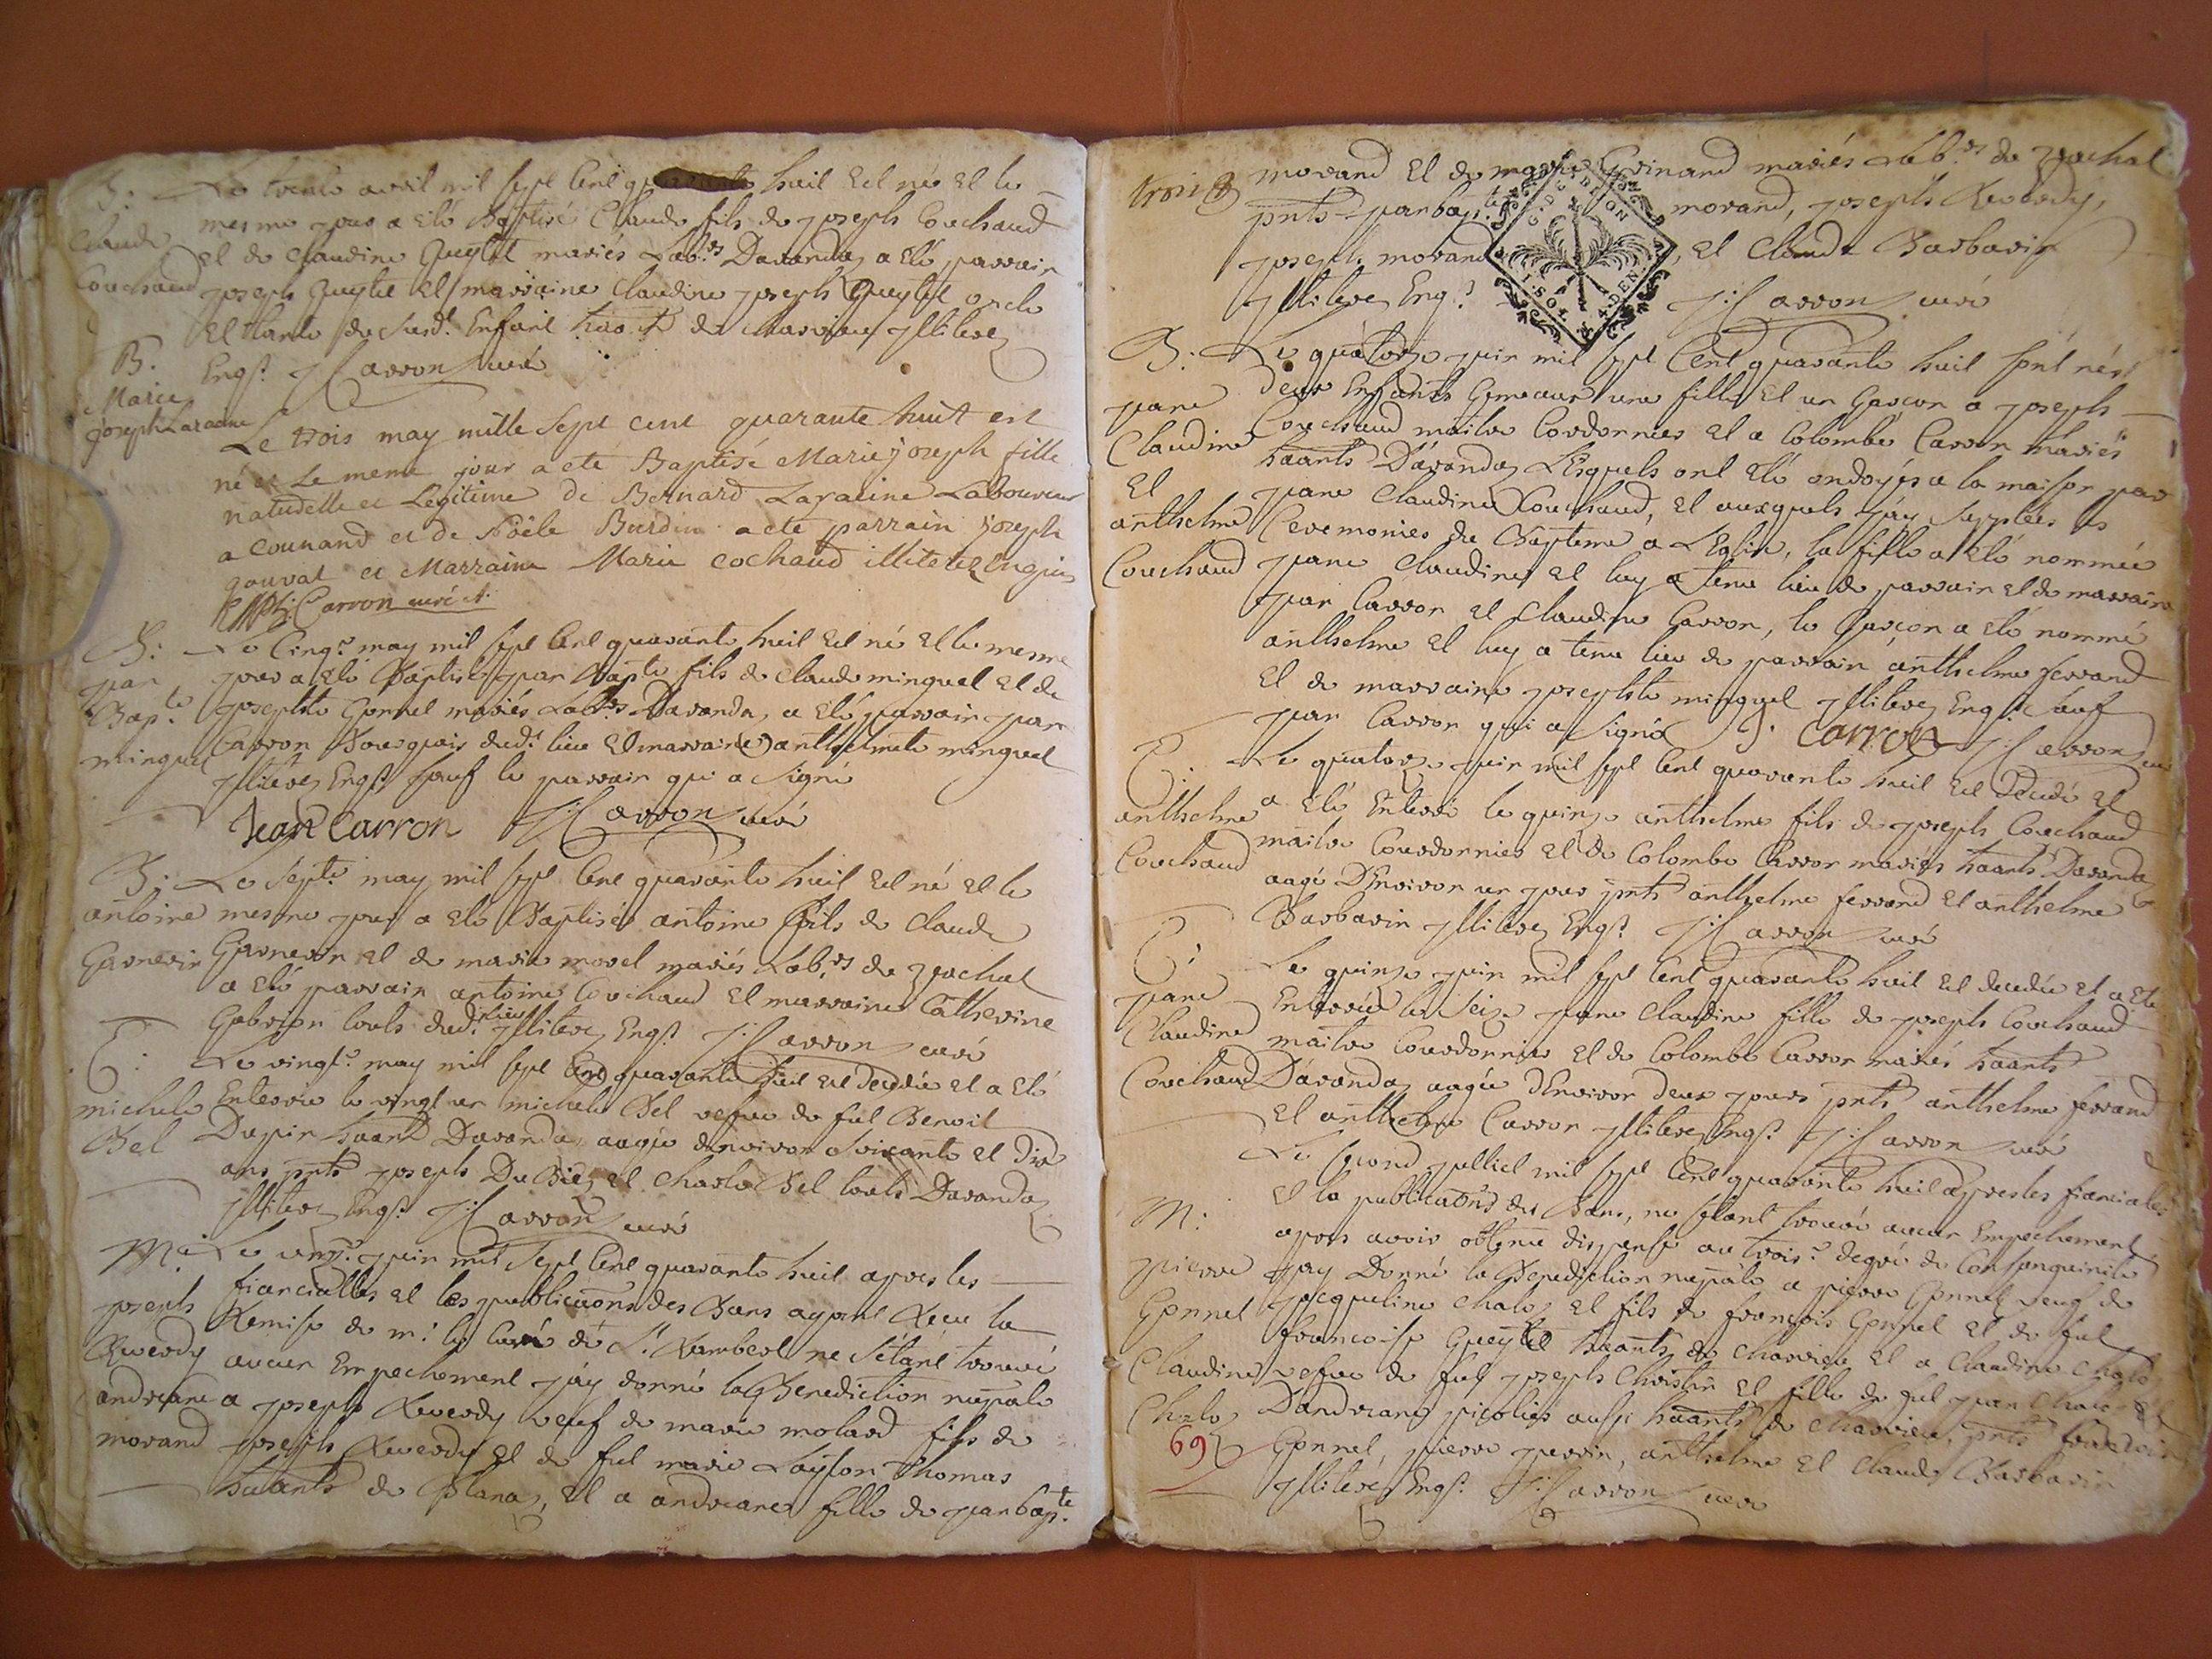 B: Le trente avril mil sept cent quarante huit est né et le
Claude mesme jour a eté Baptisé Claude fils de joseph Couchaud
Couchaud et de Claudine Queytet mariés Lab.rs Davanda, a eté parrain
joseph Queytet et marraine Claudine joseph Queytet oncle
et tante du Susd.t Enfant de Charvieu illiterez
Enq.s J: Carron curé
B.
Marie
joseph Laracine
Le trois may mille Sept cent quarante huit est
né et Le meme jour a eté Baptisé Marie joseph fille
naturelle et Légitime de Bernard Laracine Laboureur
a Counand et de Noële Burdin a ete parrain joseph
gouvat et Marraine Marie cochaud illiterez Enquis
Carron curé
B: Le Cinq.e may mil sept cent quarante huit est né et le mesme
jan jour a eté Baptisé jan Bapte fils de Claude minguet et de
Bap.te josephte Gonnet mariés Lab.rs Davanda, a eté parrain jan
minguet Carron Bourgeois dud.t lieu et marraine anthelmete minguet
illiterez Enq.s sauf le parrain qui a signé
Jean Carron J: Carron curé
B: Le Sept.e may mil sept cent quarante huit est né et le
antoine mesme jour a eté Baptisé antoine fils de Claude
Garnerin Garnerin et de marie morel mariés Lab.rs de
a eté parrain antoine Couchaud et marraine Catherine
Gabrion touts dud.t lieu illiterez Enq.s J: Carron curé
E: Le vingt.e may mil sept cent quarante huit est decedée et a eté
michele Enterrée le vingt un michele Bel vefue de fut Benoit
Bel Dupin haant Davanda, aagée denviron Soixante et dix
ans pnts joseph Du Biez et Charle Bel touts Davanda
illiterez Enq.s J: Carron curé
M: Le juin mil Sept cent quarante huit apres les
joseph fiancialles et les publicaõns des Bans ayant Receu la
Remise de m.r le Curé de S.t Rambert ne Sétant trouvé
andreane aucun Empechement jáy donné la Benediction nupale
morand a joseph veuf de marie molard fils de
joseph et de fut marie Thomas
haants de Plana, et a andreane fille de janbap.te
trois
morand et de marie Guinand mariés Lab.rs de
pnts janbap.te morand, joseph
joseph morand, et Claude Barbarin
illiterez Enq.s J: Carron curé
G. D. DE DIJON
B: Le quatorze juin mil sept cent quarante huit sont nés
jane deux Enfants Gemeaux une fille et un Garcon a joseph
Claudine Couchaud maitre Cordonnier et a Colombe Carron mariés
et haants Dávanda, Lesquels ont eté ondoyés a la maison par
anthelme jane Claudine Couchaud, et auxquels jáy Suppléés les
Couchaud Ceremonies du Bapteme a LEglise, la fille a eté nommée
jane Claudine et luy a tenu lieu de parrain et de marraine
jan Carron et Claudine Carron, le Garcon a eté nommé
anthelme et luy a tenu lieu de parrain anthelme ferrand
et de marraine josephte minguet illiterez Enq.s sauf
jan Carron qui a signé J. Carron J: Carron curé
E: Le quatorze juin mil sept cent quarante huit est decedé et
anthelme a eté Enterré le quinze anthelme fils de joseph Couchaud
Couchaud maitre Courdonnier et de Colombe Carron mariés haants Davanda
aagé DEnviron un jour pnts anthelme ferrand et anthelme
Barbarin illiterez Enq.s J: Carron curé
E: Le quinze juin mil sept cent quarante huit est decedée et a eté
jane Enterrée le Seize jane Claudine fille de joseph Couchaud
Claudine maitre Courdonnier et de Colombe Carron mariés haants
Couchaud Dávanda, aagée dEnviron deux jours pnts anthelme ferrand
et anthelme Carron illiterez Enq.s J: Carron curé
Le Second juillet mil sept cent quarante huit apres les fiancialles
M: et la publicaõns des Bans, ne sétant trouvé aucun Empechement
apres avoir obtenu dispense au trois.e degré de Consanguinité
pierre jay Donné la Benediction nupale a pierre Gonnet veuf de
Gonnet jacqueline Chalo, et fils de francois Gonnet et de fut
francoise Queytet haants de Charvieu et a Claudine Chalo
Claudine vefue de fut joseph Christin et fille de fut jean Chalo et
Chalo Dandreane aussi haants de Charvieu, pnts
69 Gonnet, pierre perrin, anthelme et Claude Barbarin
illiterez Enq.s J: Carron curé